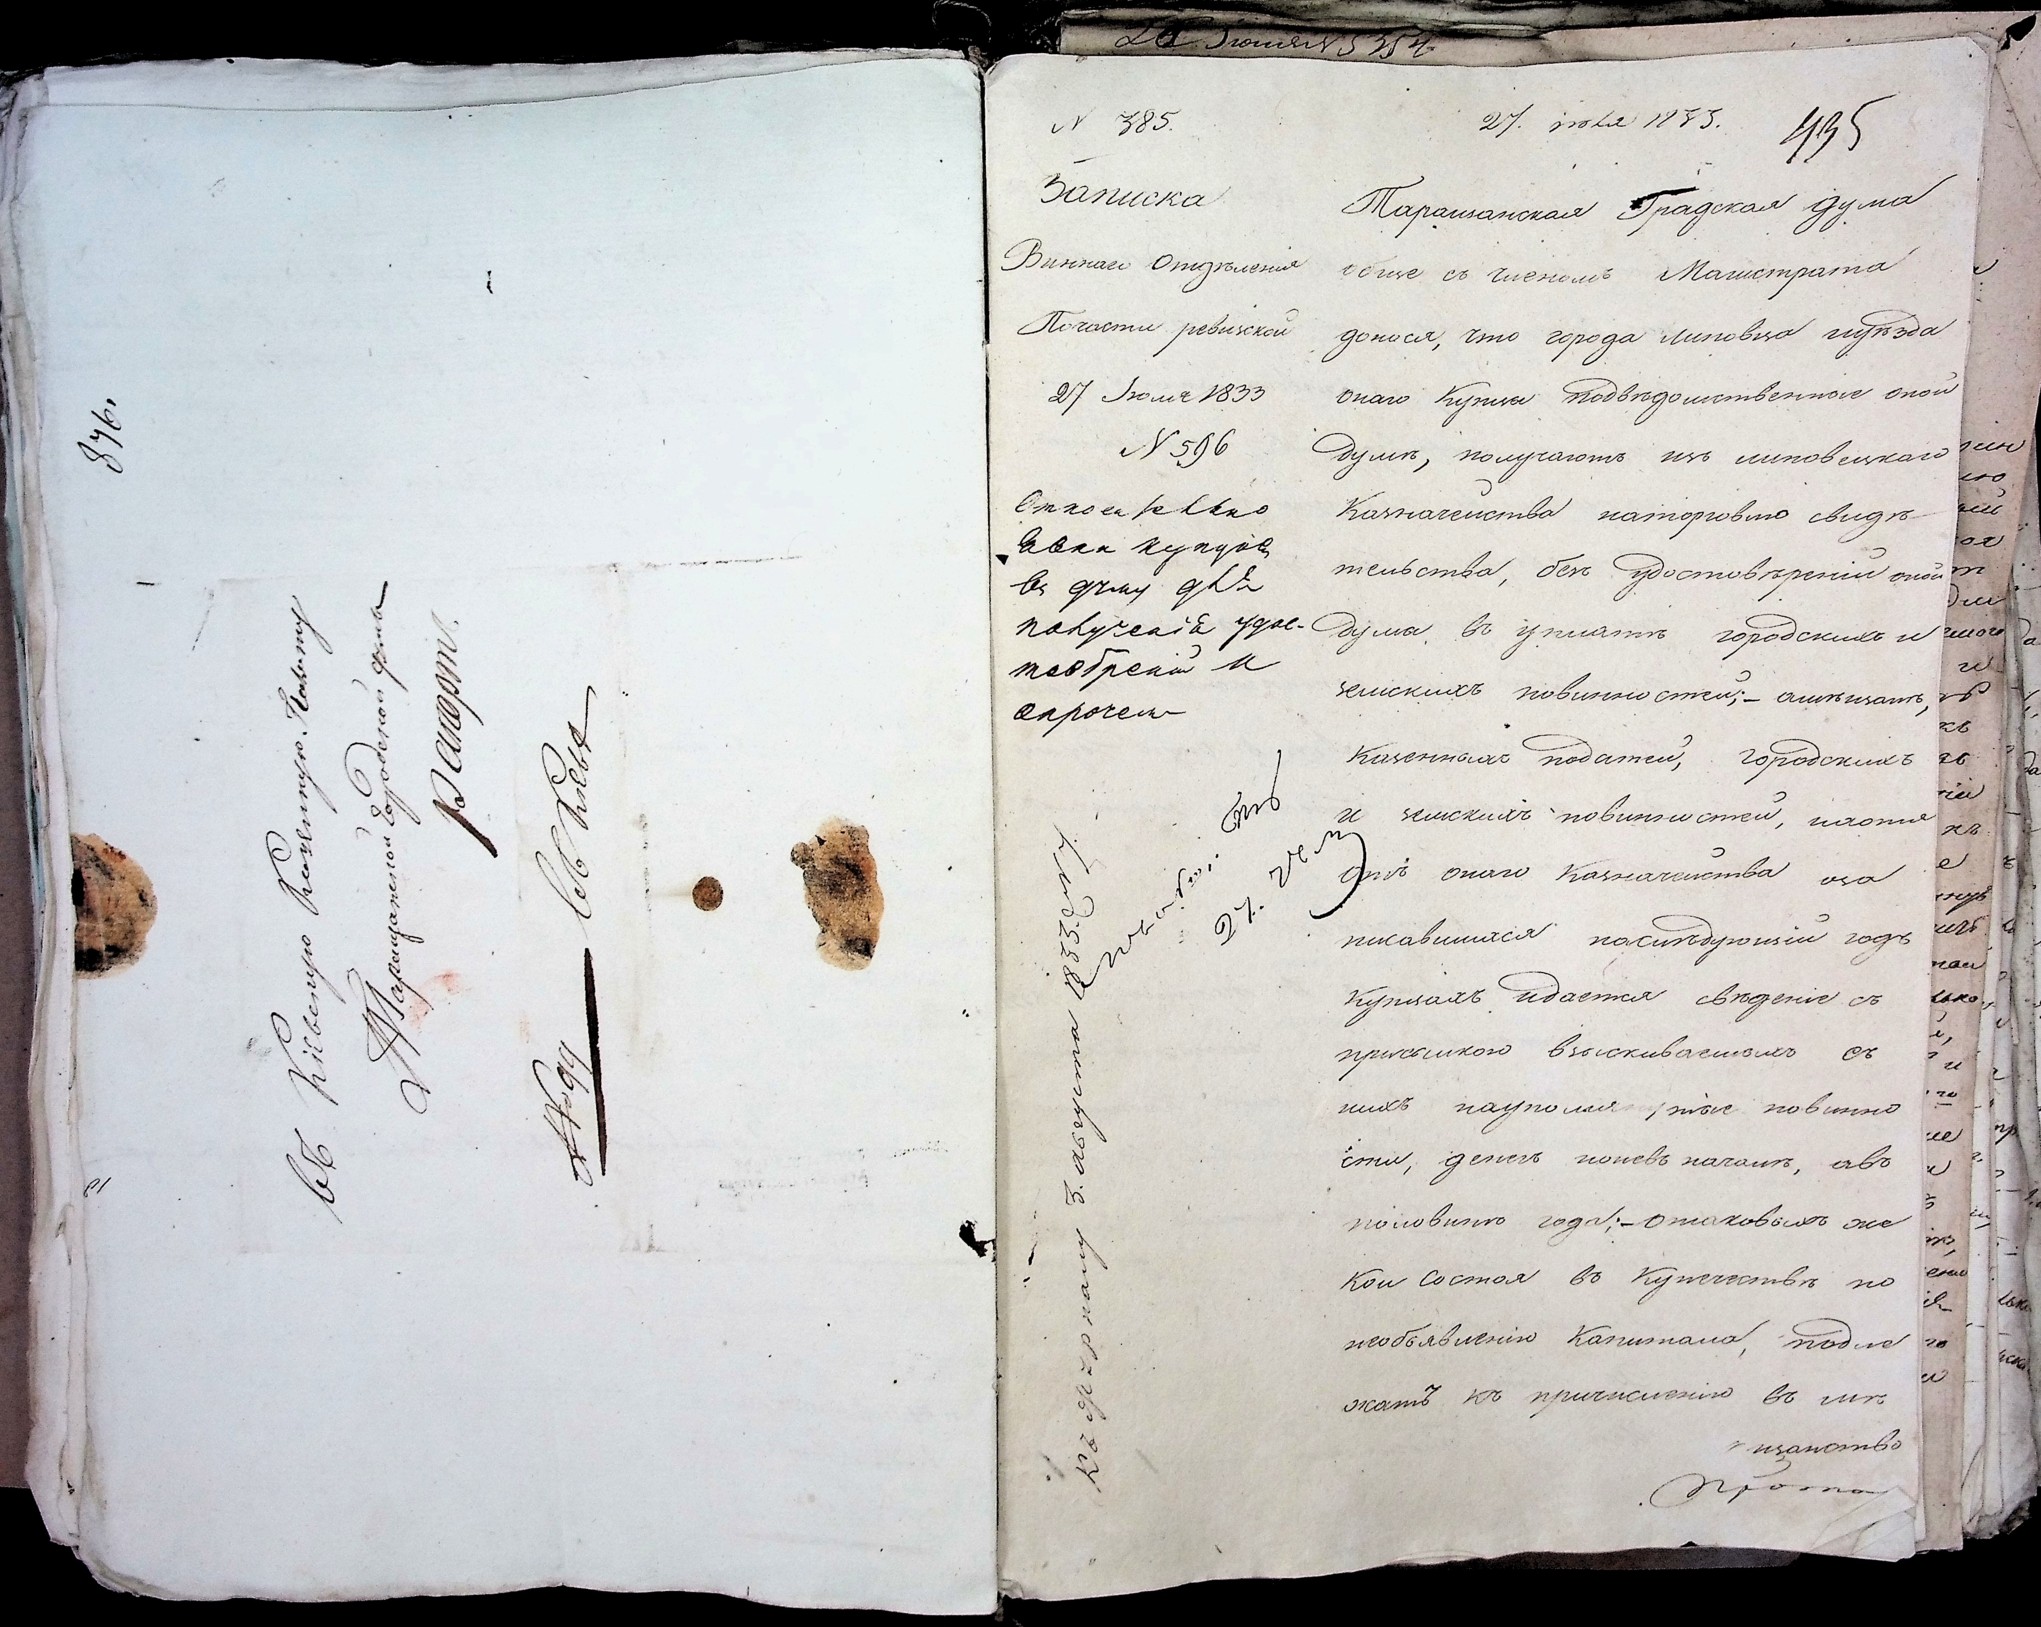 876.
въ Кіевскую Казенную Палату
Таращанской Городской Думы
Рапортъ.
№ 99 въ Кіевѣ
81
№ 385.
27. июля 1833.
435
Записка
Виннаго Отдѣленія
Почасти ревизской
27 Июля 1833
№ 596
Относительно
явки купцов
въ думу для
полученія удос-
товѣреній и
опрочем
Къ журналу 3. августа 1833. году.
27.
Таращанская Градская дума
обще съ членомъ Магистрата
донося, что города Липовца иуѣзда
онаго Купцы подвѣдомственные оной
думѣ, получаютъ изъ липовецкаго
Казначейства наторговлю свидѣ
тельства, безъ удостовѣреній оной
думы въ уплатѣ городскихъ и
земскихъ повинностей;-
Казенныхъ податей, городскихъ
и земскихъ повинностей, ихотя
отъ онаго Казначейства оза
писавшихся наслѣдующій годъ
Купцахъ идается свѣденіе съ
присылкою взыскиваемыхъ съ
нихъ повинно
сти, денегъ ноневъ началѣ, авъ
половинѣ года;-отаковыхъ же
Кои состоя въ Купечествѣ по
необъявленію Капитала, подле
жатъ къ причисленію въ мѣ
щанство